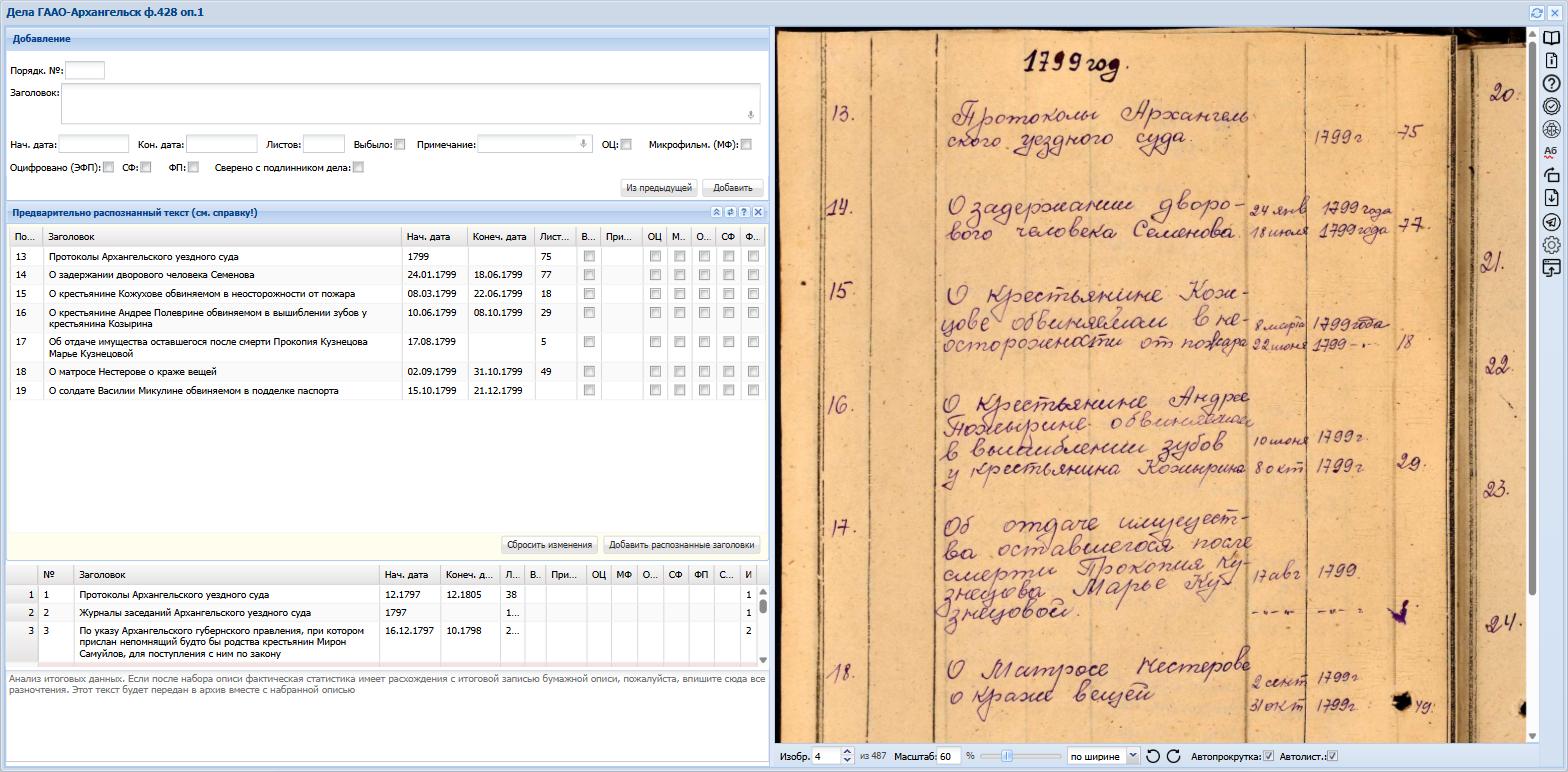 Дела ГААО-Архангельск ф.428 оп.1
Добавление
Порядк. №:
Заголовок:
Нач. дата: Кон. дата: Листов: Выбыло: Примечание: ОЦ: Микрофильм. (МФ):
Оцифровано (ЭФП): СФ: ФП: Сверено с подлинником дела:
Из предыдущей Добавить
Предварительно распознанный текст (см. справку!)
По... Заголовок Нач. дата Конеч. дата Лист... В... При... ОЦ М... О... СФ Ф...
13 Протоколы Архангельского уездного суда 1799 75
14 О задержании дворового человека Семенова 24.01.1799 18.06.1799 77
15 О крестьянине Кожухове обвиняемом в неосторожности от пожара 08.03.1799 22.06.1799 18
16 О крестьянине Андрее Полеврине обвиняемом в вышиблении зубов у 10.06.1799 08.10.1799 29
крестьянина Козырина
17 Об отдаче имущества оставшегося после смерти Прокопия Кузнецова 17.08.1799 5
Марье Кузнецовой
18 О матросе Нестерове о краже вещей 02.09.1799 31.10.1799 49
19 О солдате Василии Микулине обвиняемом в подделке паспорта 15.10.1799 21.12.1799
Сбросить изменения Добавить распознанные заголовки
№ Заголовок Нач. дата Конеч. д... Л... В.. При... ОЦ МФ О... СФ ФП С... И
1 1 Протоколы Архангельского уездного суда 12.1797 12.1805 38 1
2 2 Журналы заседаний Архангельского уездного суда 1797 1... 1
3 3 По указу Архангельского губернского правления, при котором 16.12.1797 10.1798 2... 2
прислан непомнящий будто бы родства крестьянин Мирон
Самуйлов, для поступления с ним по закону
Анализ итоговых данных. Если после набора описи фактическая статистика имеет расхождения с итоговой записью бумажной описи, пожалуйста, впишите сюда все
разночтения. Этот текст будет передан в архив вместе с набранной описью
1799 год.
13. Протоколы Архангель
ского уездного суда. 1799 г 75
14. О задержании дворо- 24 янв 1799 года
вого человека Семенова. 18 июня 1799 года 77.
15. О крестьянине Кож-
цове обвиняемом в не- 8 марта 1799 года
осторожности от пожара 22 июня 1799 -"- 18
16. О крестьянине Андрее
обвиняемом
в вышиблении зубов 10 июня 1799 г.
у крестьянина 8 окт 1799 г 29.
17. Об отдаче имущест-
ва оставшегося после
смерти Прокопия Ку- 17 авг 1799.
знецова Марье Куз-
знецовой. -"-"- -"- г
18. О Матросе Нестерове 2 сент 1799 г
о краже вещей 31 окт 1799 г. 49.
20.
21.
22.
23.
24.
Аб
Изобр. 4 из 487 Масштаб: 60 % по ширине Автопрокрутка: Автолист.: